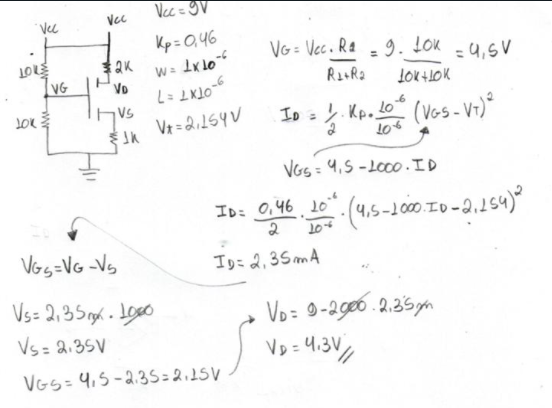 Vcc
Vcc
10K
2K
VG
VD
VS
10K
1K
Vcc = 9V
Kp = 0,46
W = 1x10^-6
L = 1x10^-6
Vt = 2,154V
VG = Vcc. R2 / R1+R2 = 9. 10K / 10K+10K = 4,5V
ID = 1/2 . Kp. 10^-6 / 10^-6 (VGS - VT)^2
VGS = 4,5 - 1000. ID
ID = 0,46 / 2 . 10^-6 / 10^-6 . (4,5 - 1000.ID - 2,154)^2
ID = 2,35mA
VGS = VG - VS
VS = 2,35m . 1000
VS = 2,35V
VGS = 4,5 - 2,35 = 2,15V
VD = 9 - 2000 . 2,35m
VD = 4,3V //